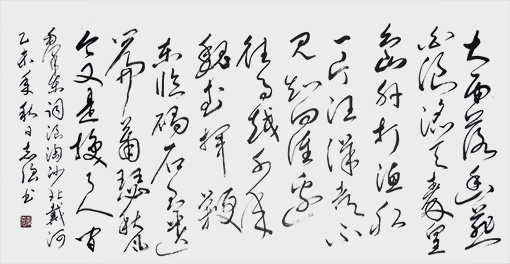 大雨落幽燕
白浪滔天秦皇
岛外打渔船
一片汪洋都不
见知向谁边
往事越千年
魏武挥鞭
东临碣石有遗
篇萧瑟秋风
今又是换了人间
毛泽东词浪淘沙北戴河
乙未年秋日志强书